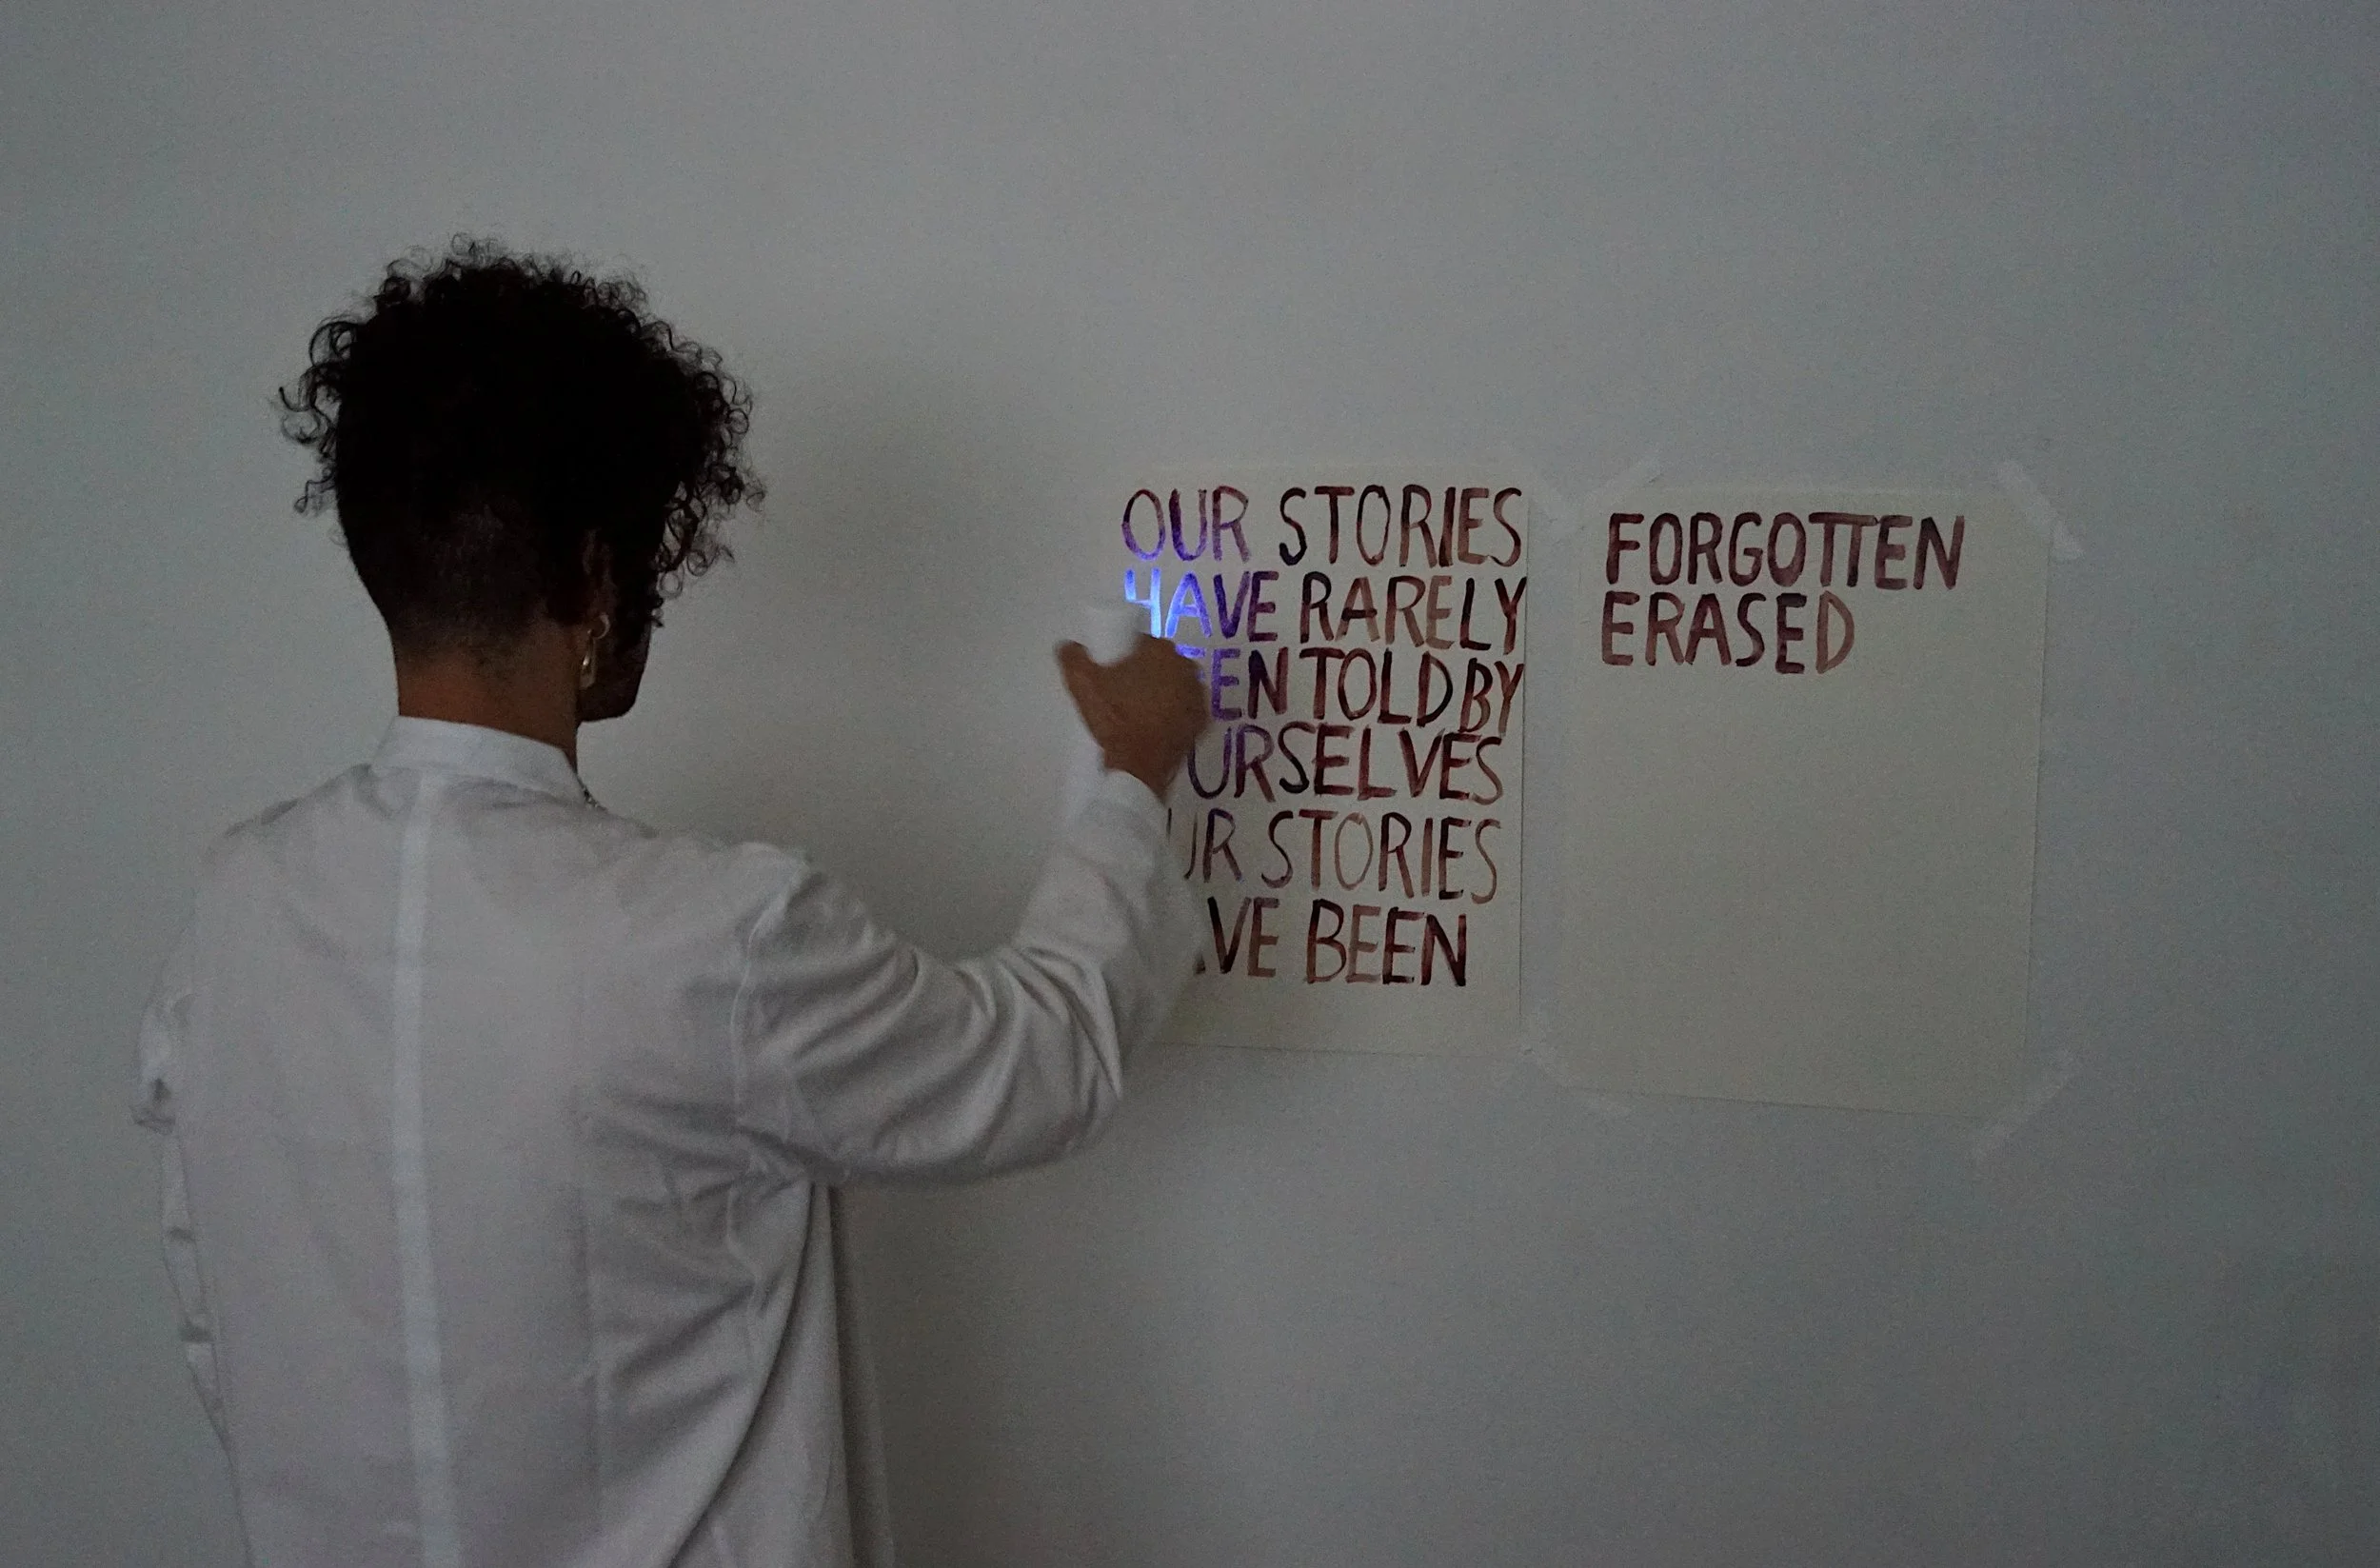 OUR STORIES
HAVE RARELY
EEN TOLD BY
URSELVES
UR STORIES
VE BEEN
FORGOTTEN
ERASED